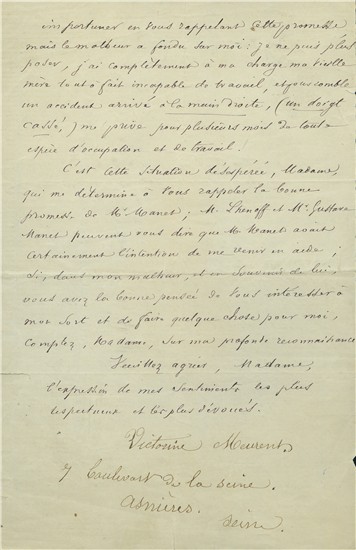 importuner en vous rappelant cette promesse
mais le malheur a fondu sur moi : je ne puis plus
poser, j'ai complètement à ma charge ma vieille
mère tout à fait incapable de travail, et pour comble
un accident arrivé à la main droite, (un doigt
cassé,) me prive pour plusieurs mois de toute
espèce d'occupation et de travail.
C'est cette situation désespérée, Madame,
qui me détermine à vous rappeler la bonne
promesse de Mr Manet ; M. Leenhoff et Mr Gustave
Manet peuvent vous dire que Mr Manet avait
certainement l'intention de me venir en aide ;
si, dans mon malheur, et en souvenir de lui,
vous avez la bonne pensée de vous intéresser à
mon sort et de faire quelque chose pour moi,
comptez, Madame, sur ma profonde reconnaissance
Veuillez agréer, Madame,
l'expression de mes sentiments les plus
respectueux et les plus dévoués.
Victorine Meurent.
7 boulevart de la Seine.
Asnières.
Seine.